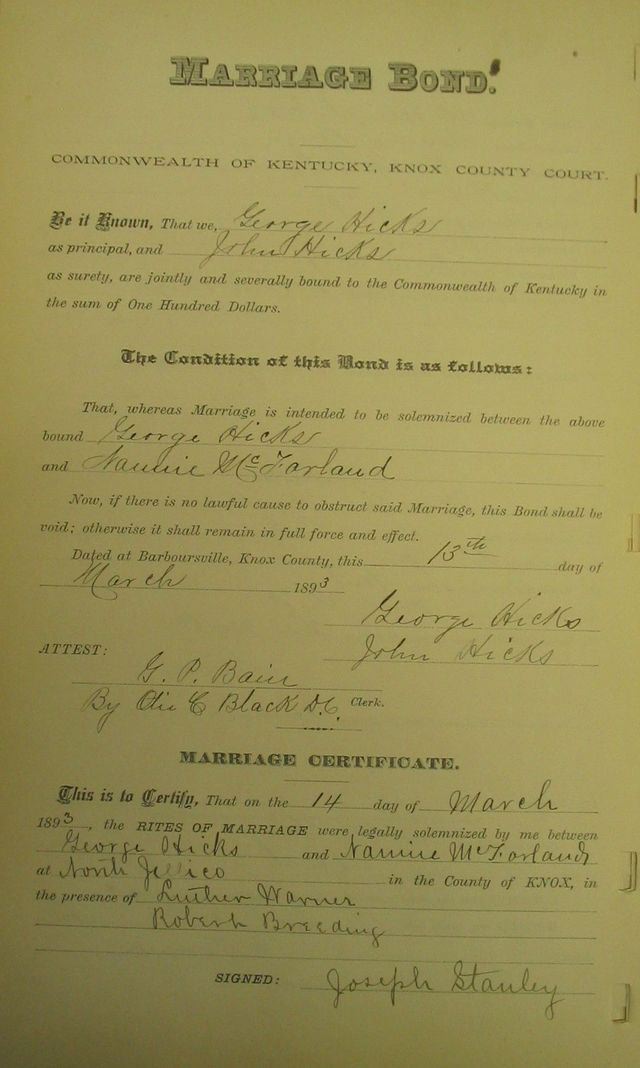 MARRIAGE BOND.
COMMONWEALTH OF KENTUCKY, KNOX COUNTY COURT.
Be it Known, That we, George Hicks
as principal, and John Hicks
as surety, are jointly and severally bound to the Commonwealth of Kentucky in
the sum of One Hundred Dollars.
The Condition of this Bond is as follows:
That, whereas Marriage is intended to be solemnized between the above
bound George Hicks
and Nannie McFarland
Now, if there is no lawful cause to obstruct said Marriage, this Bond shall be
void; otherwise it shall remain in full force and effect.
Dated at Barboursville, Knox County, this 13th day of
March 1893
George Hicks
John Hicks
ATTEST:
G. P. Bain
By C Black D.C. Clerk.
MARRIAGE CERTIFICATE.
This is to Certify, That on the 14 day of March
1893, the RITES OF MARRIAGE were legally solemnized by me between
George Hicks and Nannie McFarland
at North Jellico in the County of KNOX, in
the presence of Luther Warner
Robert Breeding
SIGNED: Joseph Stanley